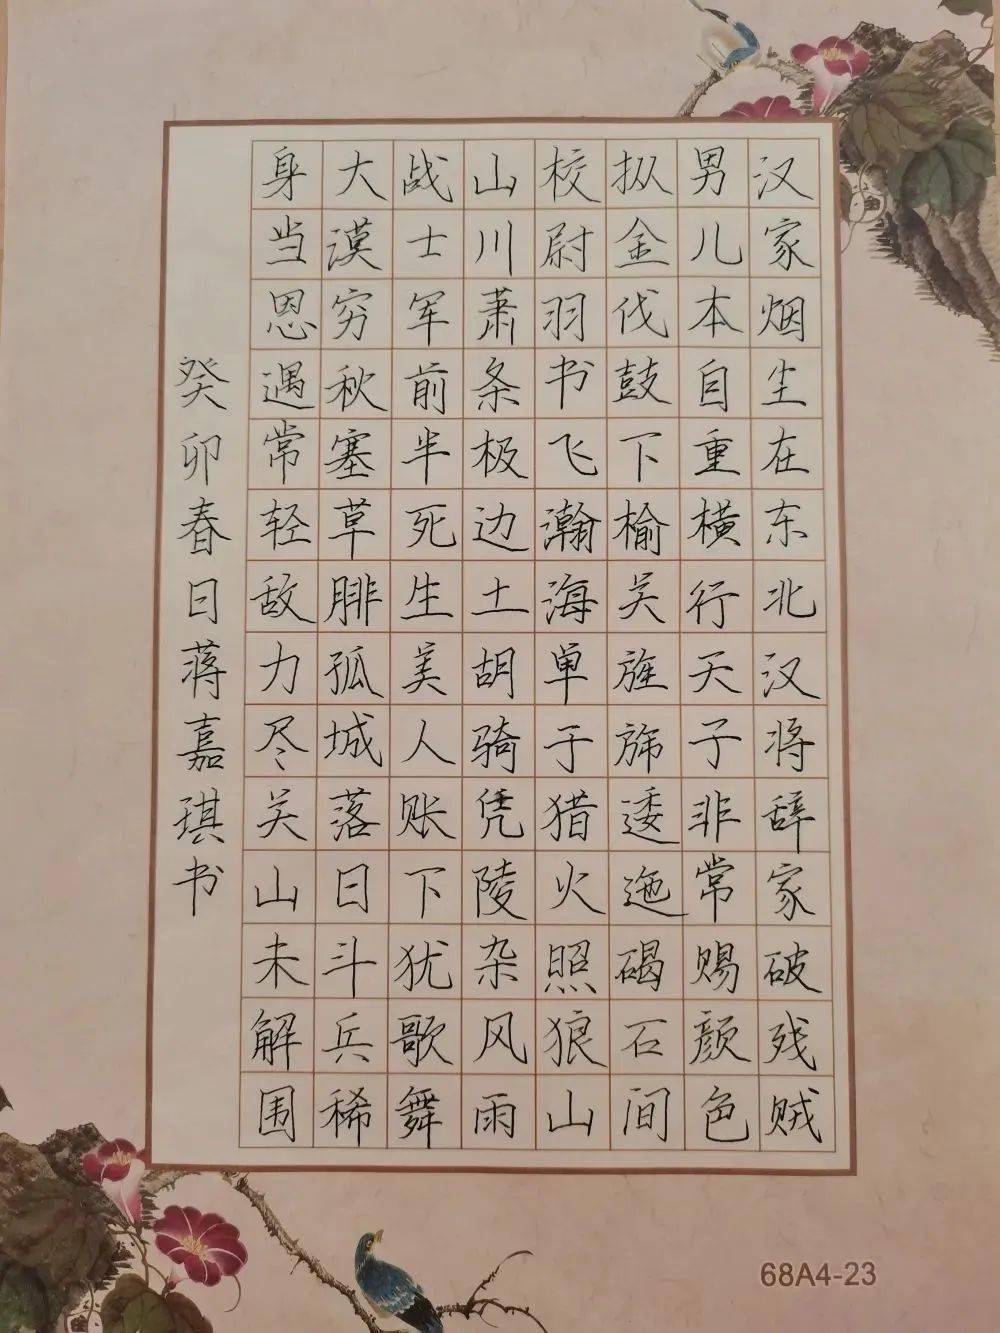 汉家烟尘在东北汉将辞家破残贼
男儿本自重横行天子非常赐颜色
𪭢金伐鼓下榆关旌旆逶迤碣石间
校尉羽书飞瀚海单于猎火照狼山
山川萧条极边土胡骑凭陵杂风雨
战士军前半死生美人账下犹歌舞
大漠穷秋塞草腓孤城落日斗兵稀
身当恩遇常轻敌力尽关山未解围
癸卯春日蒋嘉琪书
68A4-23